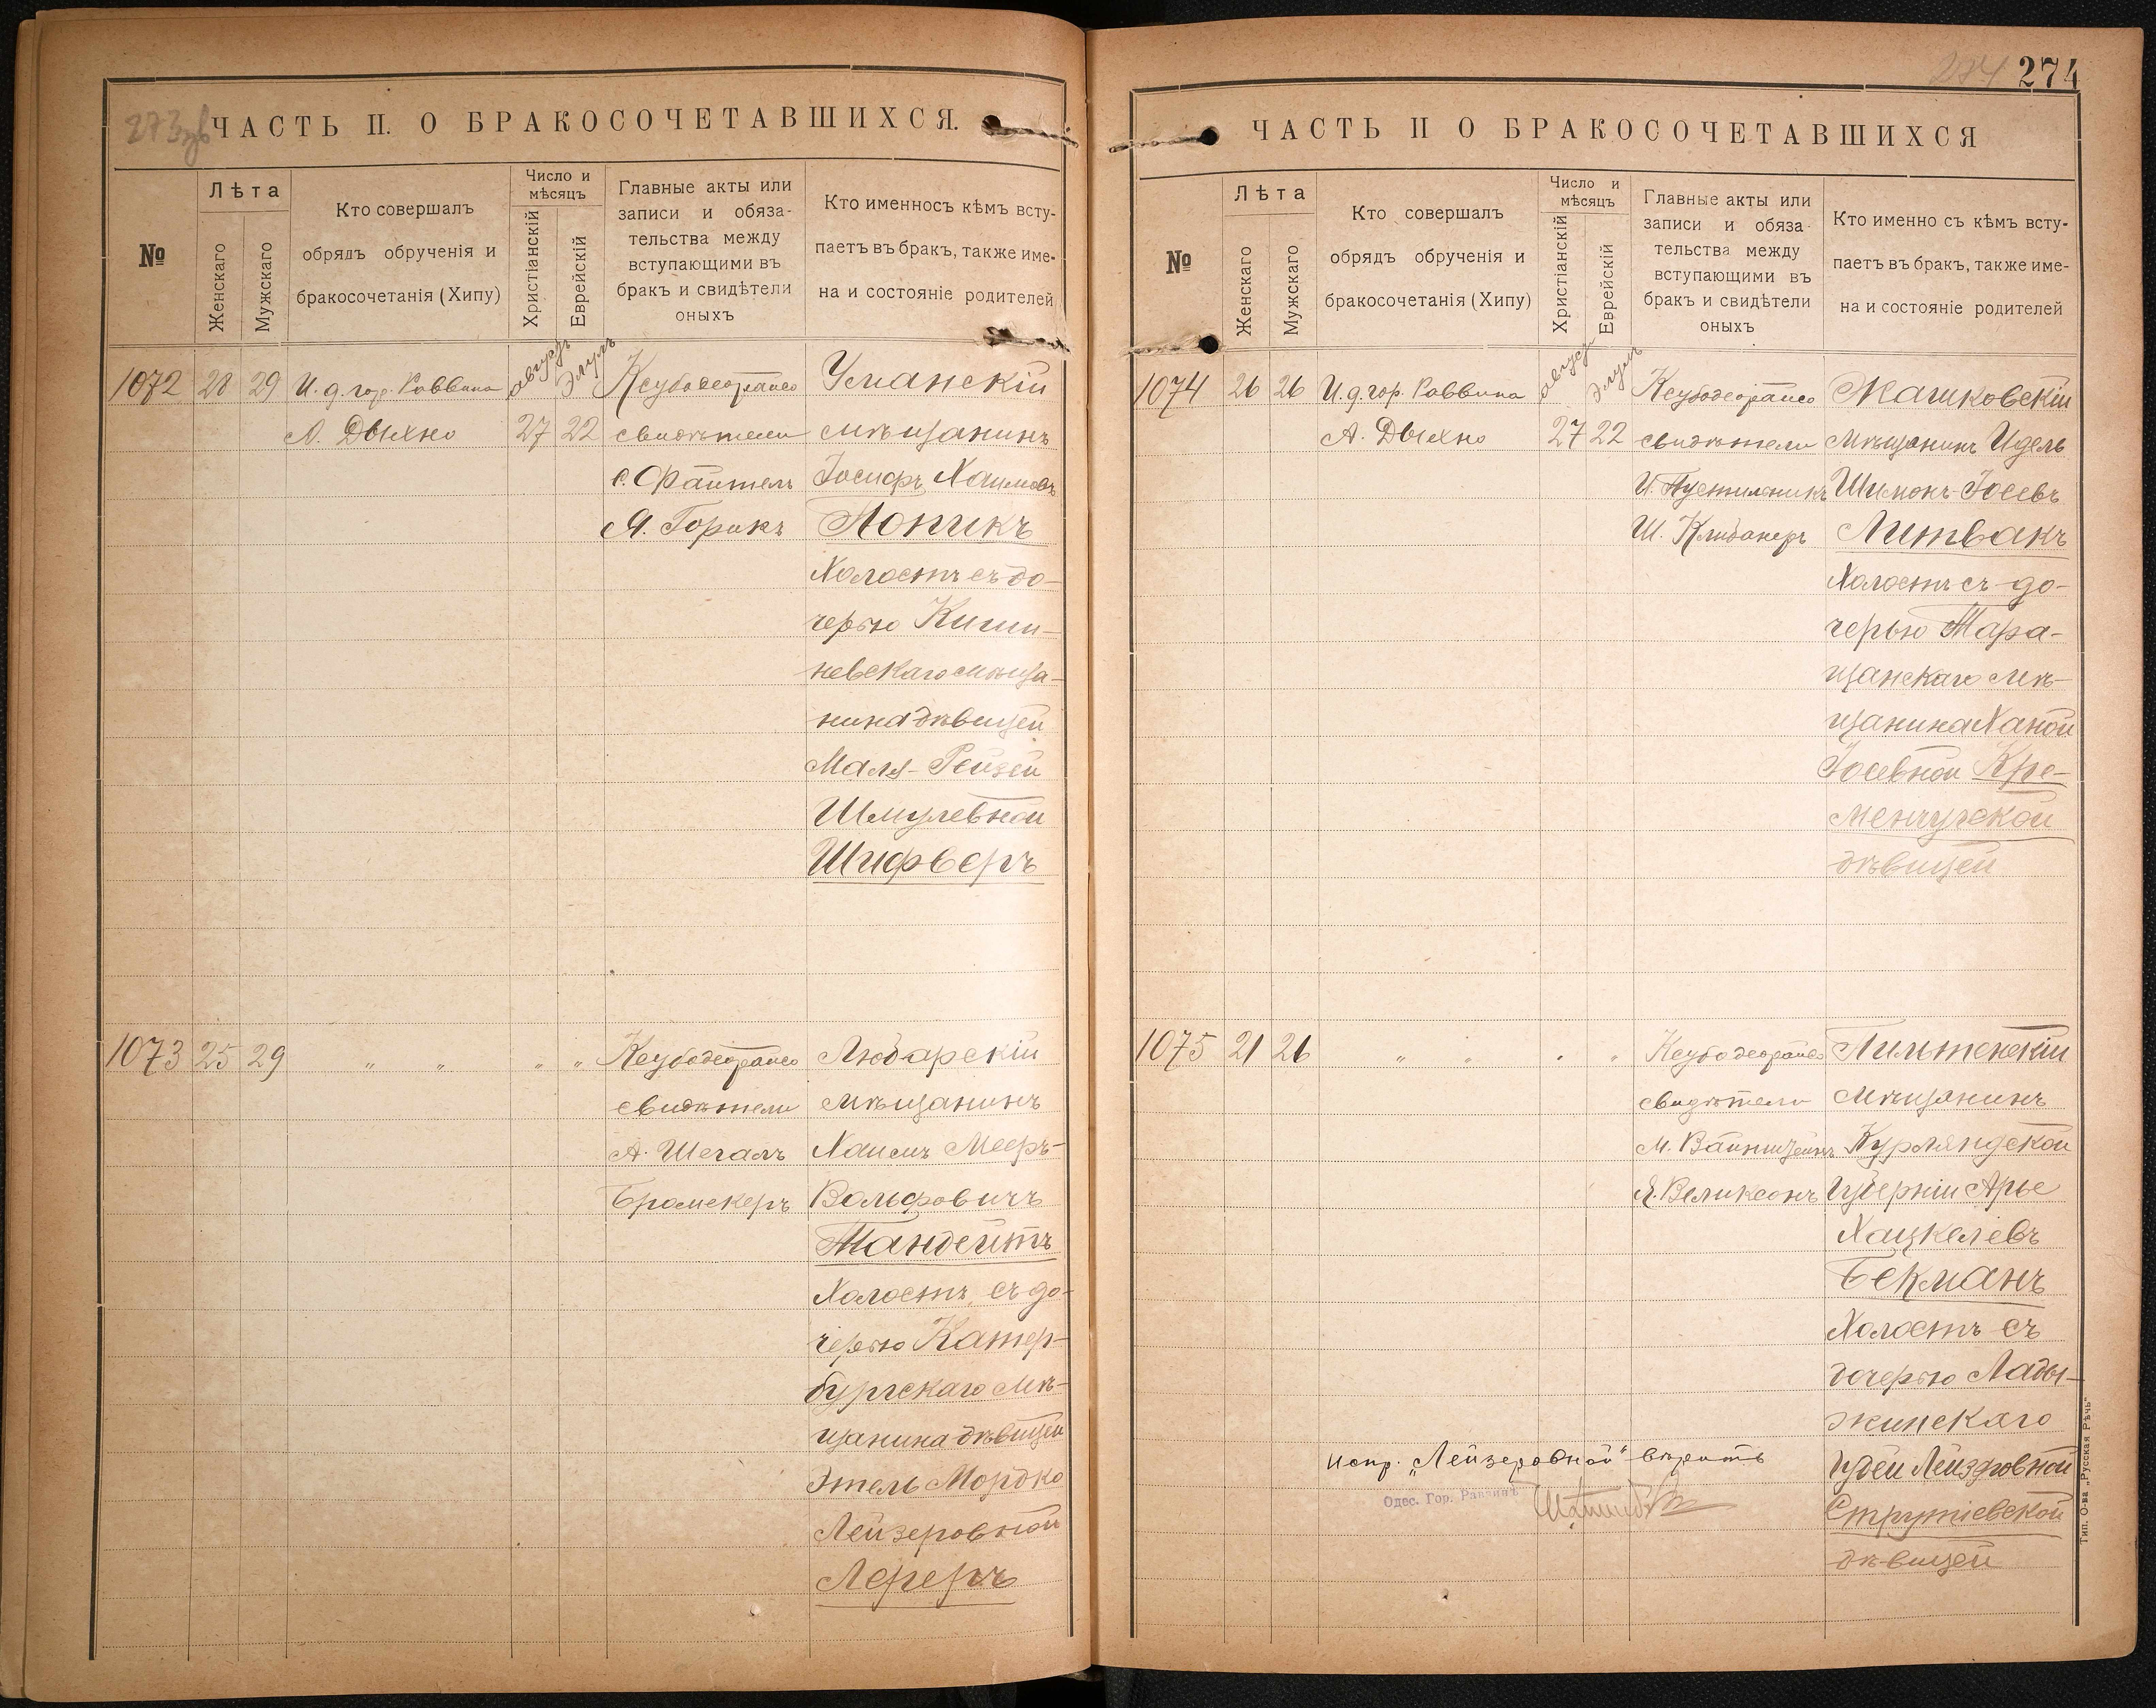 273 зв
ЧАСТЬ II. О БРАКОСОЧЕТАВШИХСЯ.
№
Лѣта
Женскаго
Мужскаго
Кто совершалъ
обрядъ обрученія и
бракосочетанія (Хипу)
Число и
мѣсяцъ
Христіанскій
Еврейскій
Главные акты или
записи и обяза-
тельства между
вступающими въ
бракъ и свидѣтели
оныхъ
Кто именносъ кѣмъ всту-
паетъ въ бракъ, также име-
на и состояніе родителей
1072 28 29 И. д. гор. Раввина
А. Дыхно
Августъ
27
Элулъ
22
свидѣтели
С. Файтель
Я. Горикъ
Уманскій
мѣщанинъ
Іосифъ Хаимовъ
Попикъ
Холостъ съ до-
черью Киши-
невскаго мѣща-
нина дѣвицей
Маля-Рейзей
Шмулевной
Шифберъ
1073 25 29 " " " "
свидѣтели
А. Шегалъ
Брамскеръ
Любарскій
мѣщанинъ
Хаимъ Мееръ-
Вольфовичъ
Тандейтъ
Холостъ, съ до-
черью Катер-
бургскаго мѣ-
щанина дѣвицей
Этель Мордко
Лейзеровной
Лереръ
274
274
ЧАСТЬ II О БРАКОСОЧЕТАВШИХСЯ
№
Лѣта
Женскаго
Мужскаго
Кто совершалъ
обрядъ обрученія и
бракосочетанія (Хипу)
Число и
мѣсяцъ
Христіанскій
Еврейскій
Главные акты или
записи и обяза-
тельства между
вступающими въ
бракъ и свидѣтели
оныхъ
Кто именно съ кѣмъ всту-
паетъ въ бракъ, также име-
на и состояніе родителей
1074 26 26 И. д. гор. Раввина
А. Дыхно
Августъ
27
Элулъ
22
свидѣтели
И. Пустильникъ
Ш. Клибанеръ
Жашковскій
мѣщанинъ Идель
Шимонъ-Іосевъ
Литвакъ
Холостъ съ до-
черью Тара-
щанскаго мѣ-
щанина Ханой
Іосевной Кре-
менчугской
дѣвицей
1075 21 26 " " " "
свидѣтели
М. Вайнштейнъ
Я. Великсонъ
Пильтенскій
мѣщанинъ
Курляндской
губерніи Арье
Хацкелевъ
Бекманъ
Холостъ съ
дочерью Лады-
жинскаго
Идей Лейзеровной
Струтіевской
дѣвицей
испр. „Лейзеровной" вѣрить
Одес. Гор. Раввинъ
Тип. О-ва „Русская Рѣчь"